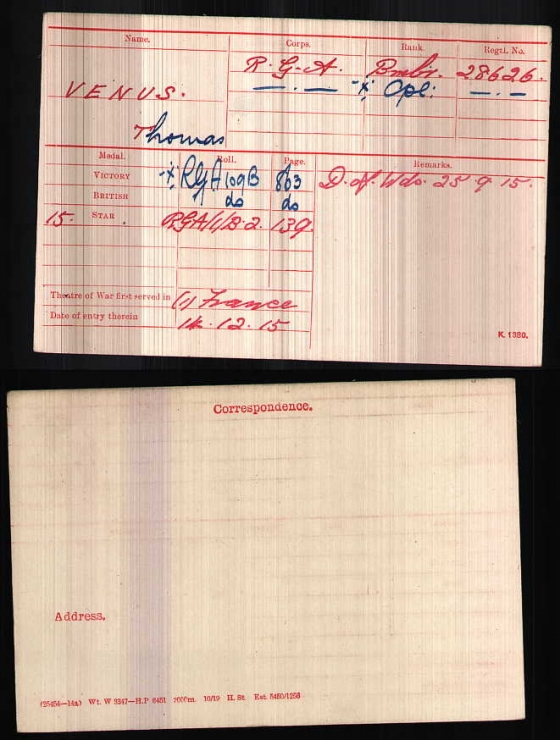 Name. Corps. Rank. Regtl. No.
R. G. A. Bmbr. 28626.
VENUS. —"— * Cpl: —"—
Thomas
Medal. Roll. Page. Remarks.
VICTORY * RGA 109B 863 D. of Wds. 25 9 15.
BRITISH do do
15. STAR . RGA/1/D.2. 139
Theatre of War first served in (1) France
Date of entry therein 12.15
K. 1380.
Correspondence.
Address.
(25454—14a) Wt. W 3347—H.P 8451 7000m. 10/19 H. St.